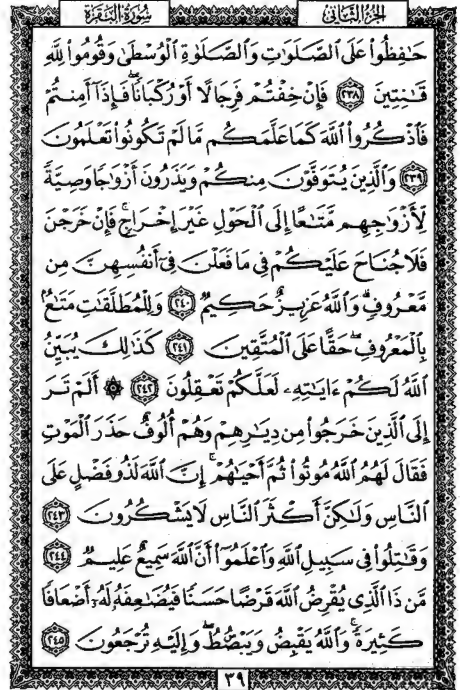 سُورَةُ البَقَرَةِ الجُزْءُ الثَّانِي
حَـٰفِظُوا۟ عَلَى ٱلصَّلَوَٰتِ وَٱلصَّلَوٰةِ ٱلْوُسْطَىٰ وَقُومُوا۟ لِلَّهِ
قَـٰنِتِينَ ٢٣٨ فَإِنْ خِفْتُمْ فَرِجَالًا أَوْ رُكْبَانًا ۖ فَإِذَآ أَمِنتُمْ
فَٱذْكُرُوا۟ ٱللَّهَ كَمَا عَلَّمَكُم مَّا لَمْ تَكُونُوا۟ تَعْلَمُونَ
٢٣٩ وَٱلَّذِينَ يُتَوَفَّوْنَ مِنكُمْ وَيَذَرُونَ أَزْوَٰجًا وَصِيَّةً
لِّأَزْوَٰجِهِم مَّتَـٰعًا إِلَى ٱلْحَوْلِ غَيْرَ إِخْرَاجٍ ۚ فَإِنْ خَرَجْنَ
فَلَا جُنَاحَ عَلَيْكُمْ فِى مَا فَعَلْنَ فِىٓ أَنفُسِهِنَّ مِن
مَّعْرُوفٍ ۗ وَٱللَّهُ عَزِيزٌ حَكِيمٌ ٢٤٠ وَلِلْمُطَلَّقَـٰتِ مَتَـٰعٌۢ
بِٱلْمَعْرُوفِ ۖ حَقًّا عَلَى ٱلْمُتَّقِينَ ٢٤١ كَذَٰلِكَ يُبَيِّنُ
ٱللَّهُ لَكُمْ ءَايَـٰتِهِۦ لَعَلَّكُمْ تَعْقِلُونَ ٢٤٢ ۞ أَلَمْ تَرَ
إِلَى ٱلَّذِينَ خَرَجُوا۟ مِن دِيَـٰرِهِمْ وَهُمْ أُلُوفٌ حَذَرَ ٱلْمَوْتِ
فَقَالَ لَهُمُ ٱللَّهُ مُوتُوا۟ ثُمَّ أَحْيَـٰهُمْ ۚ إِنَّ ٱللَّهَ لَذُو فَضْلٍ عَلَى
ٱلنَّاسِ وَلَـٰكِنَّ أَكْثَرَ ٱلنَّاسِ لَا يَشْكُرُونَ ٢٤٣
وَقَـٰتِلُوا۟ فِى سَبِيلِ ٱللَّهِ وَٱعْلَمُوٓا۟ أَنَّ ٱللَّهَ سَمِيعٌ عَلِيمٌ ٢٤٤
مَّن ذَا ٱلَّذِى يُقْرِضُ ٱللَّهَ قَرْضًا حَسَنًا فَيُضَـٰعِفَهُۥ لَهُۥٓ أَضْعَافًا
كَثِيرَةً ۚ وَٱللَّهُ يَقْبِضُ وَيَبْصُۜطُ وَإِلَيْهِ تُرْجَعُونَ ٢٤٥
٣٩